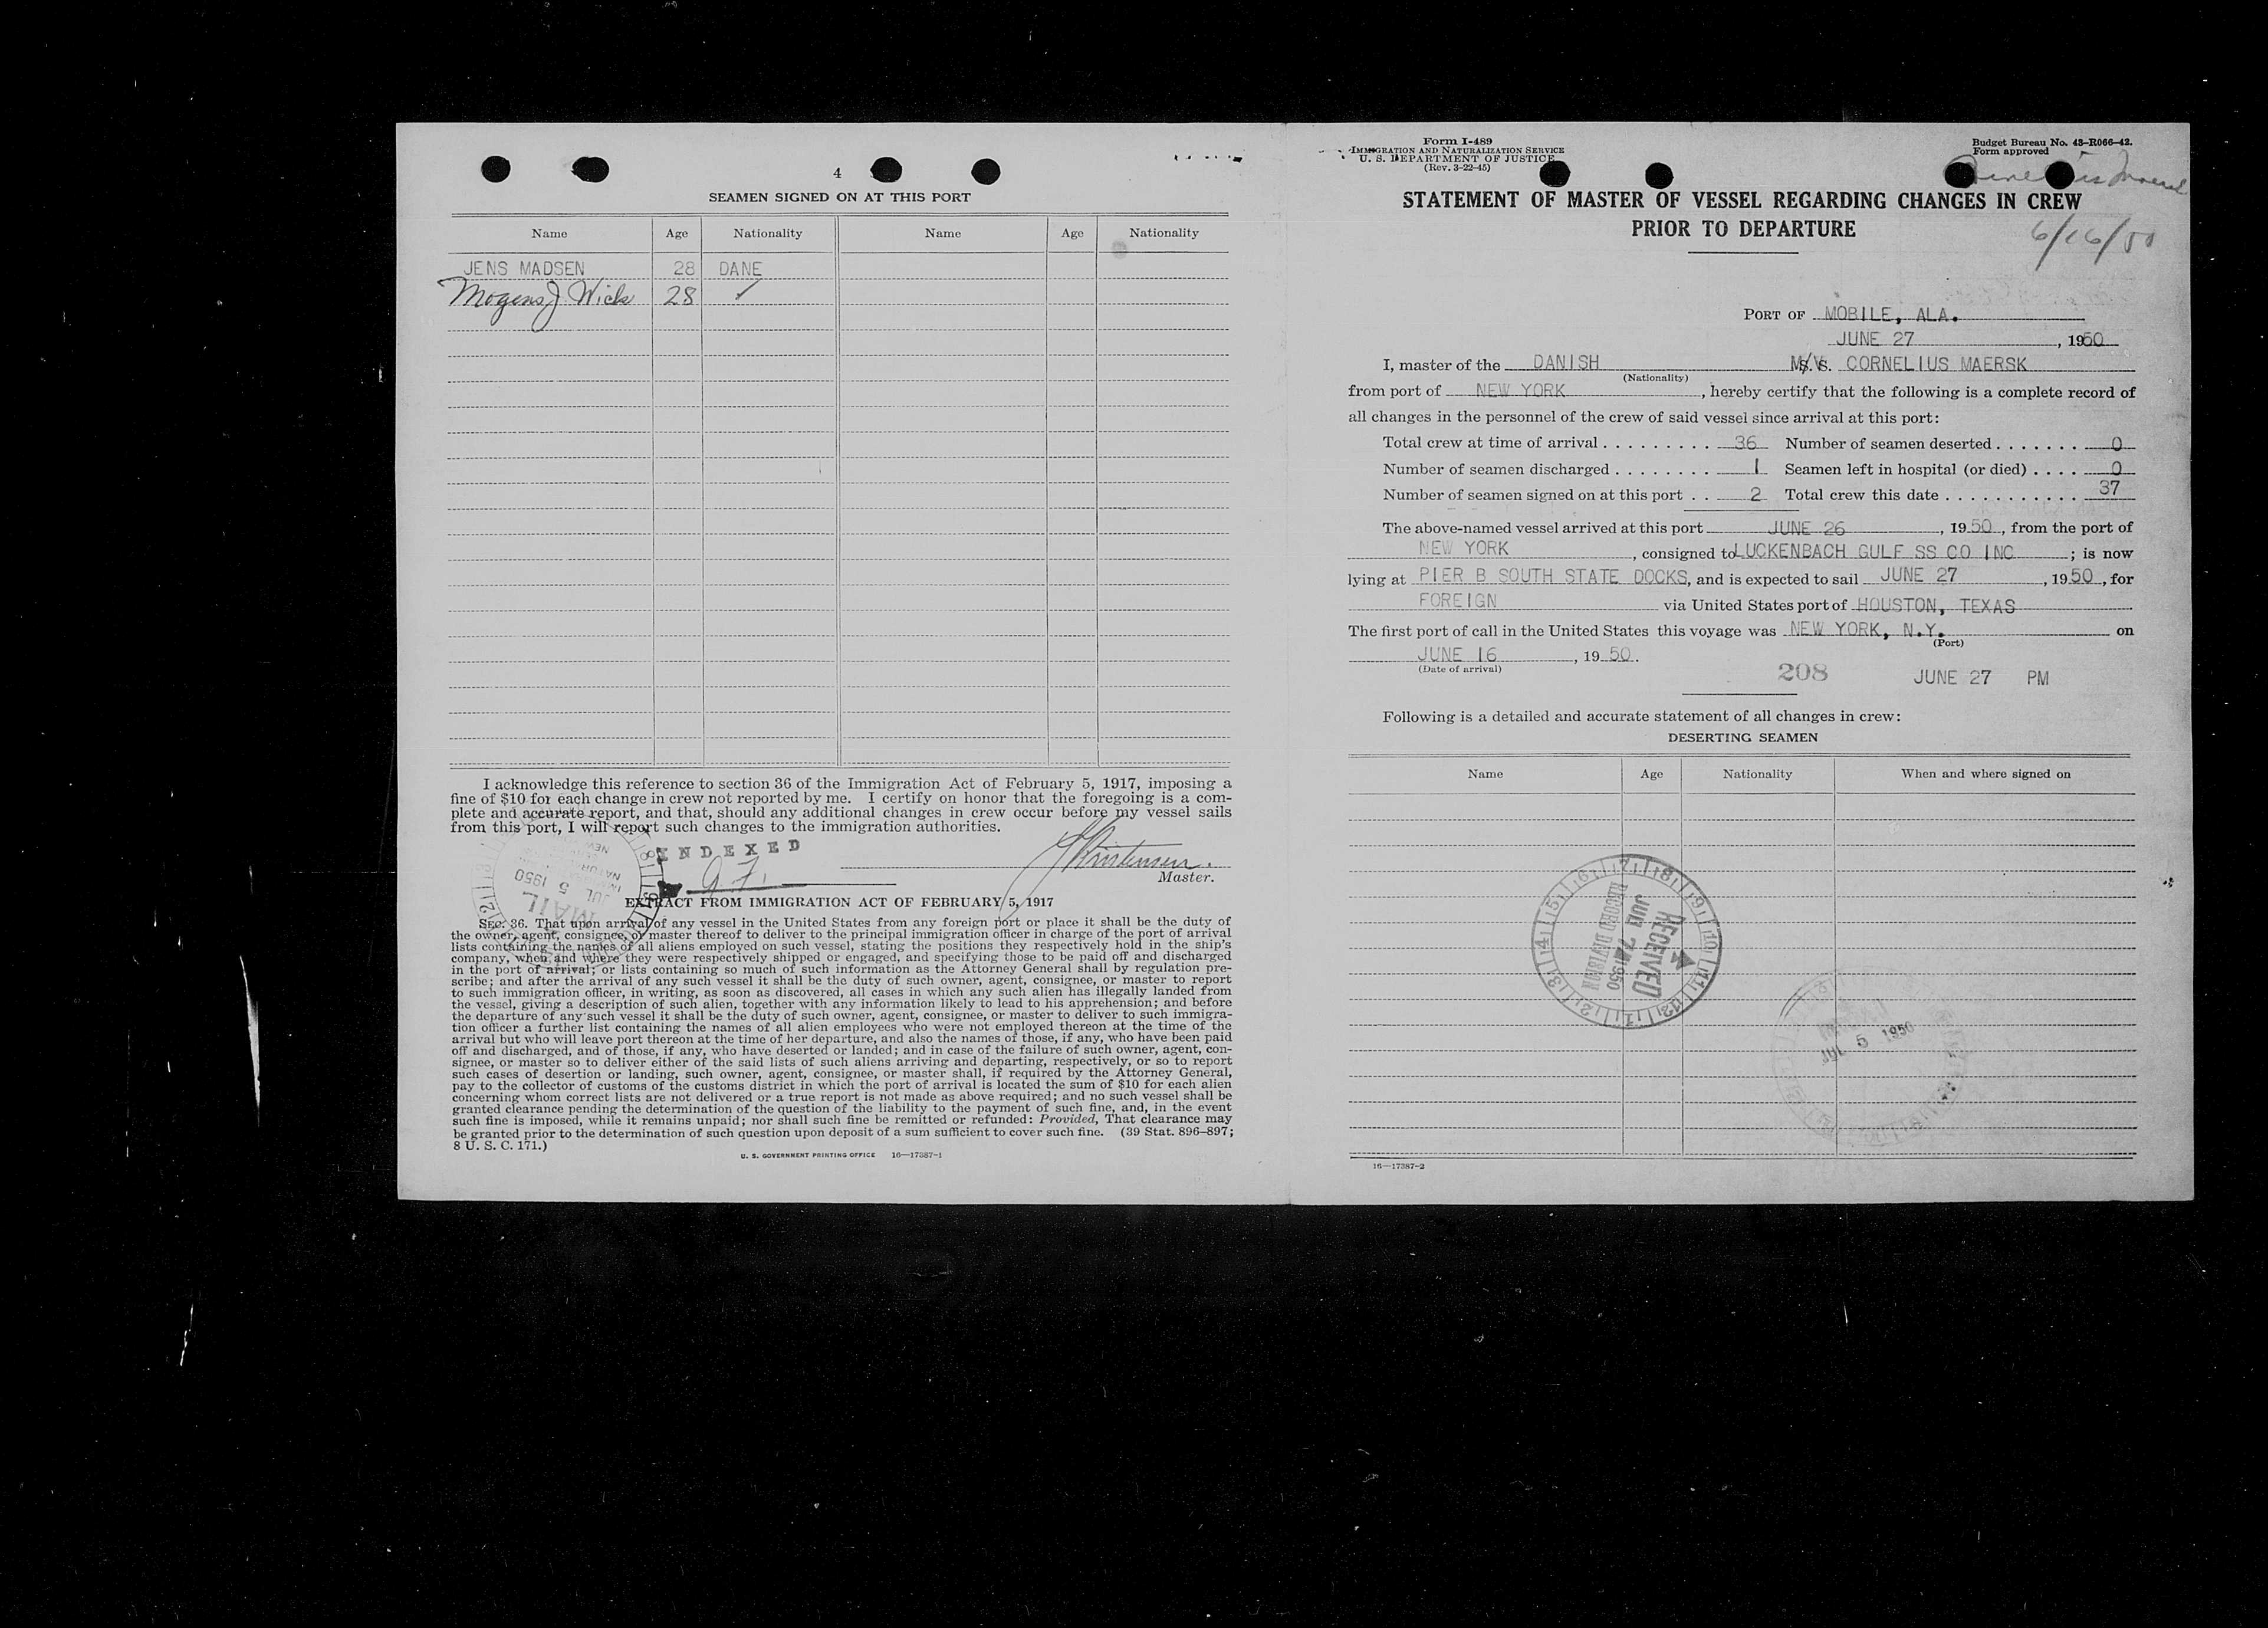 4
SEAMEN SIGNED ON AT THIS PORT
Name Age Nationality Name Age Nationality
JENS MADSEN 28 DANE
Mogens J. Wick 28 ✓
I acknowledge this reference to section 36 of the Immigration Act of February 5, 1917, imposing a
fine of $10 for each change in crew not reported by me. I certify on honor that the foregoing is a com-
plete and accurate report, and that, should any additional changes in crew occur before my vessel sails
from this port, I will report such changes to the immigration authorities.
INDEXED
Master.
MAIL
JUL 5 1950
EXTRACT FROM IMMIGRATION ACT OF FEBRUARY 5, 1917
SEC. 36. That upon arrival of any vessel in the United States from any foreign port or place it shall be the duty of
the owner, agent, consignee, or master thereof to deliver to the principal immigration officer in charge of the port of arrival
lists containing the names of all aliens employed on such vessel, stating the positions they respectively hold in the ship's
company, when and where they were respectively shipped or engaged, and specifying those to be paid off and discharged
in the port of arrival; or lists containing so much of such information as the Attorney General shall by regulation pre-
scribe; and after the arrival of any such vessel it shall be the duty of such owner, agent, consignee, or master to report
to such immigration officer, in writing, as soon as discovered, all cases in which any such alien has illegally landed from
the vessel, giving a description of such alien, together with any information likely to lead to his apprehension; and before
the departure of any such vessel it shall be the duty of such owner, agent, consignee, or master to deliver to such immigra-
tion officer a further list containing the names of all alien employees who were not employed thereon at the time of the
arrival but who will leave port thereon at the time of her departure, and also the names of those, if any, who have been paid
off and discharged, and of those, if any, who have deserted or landed; and in case of the failure of such owner, agent, con-
signee, or master so to deliver either of the said lists of such aliens arriving and departing, respectively, or so to report
such cases of desertion or landing, such owner, agent, consignee, or master shall, if required by the Attorney General,
pay to the collector of customs of the customs district in which the port of arrival is located the sum of $10 for each alien
concerning whom correct lists are not delivered or a true report is not made as above required; and no such vessel shall be
granted clearance pending the determination of the question of the liability to the payment of such fine, and, in the event
such fine is imposed, while it remains unpaid; nor shall such fine be remitted or refunded: Provided, That clearance may
be granted prior to the determination of such question upon deposit of a sum sufficient to cover such fine. (39 Stat. 896–897;
8 U. S. C. 171.)
U. S. GOVERNMENT PRINTING OFFICE 16—17387-1
Form I-489
IMMIGRATION AND NATURALIZATION SERVICE
U. S. DEPARTMENT OF JUSTICE
(Rev. 3-22-45)
Budget Bureau No. 43-R066-42.
Form approved
STATEMENT OF MASTER OF VESSEL REGARDING CHANGES IN CREW
PRIOR TO DEPARTURE
6/16/50
PORT OF MOBILE, ALA.
JUNE 27, 1950
I, master of the DANISH M/V. CORNELIUS MAERSK
(Nationality)
from port of NEW YORK, hereby certify that the following is a complete record of
all changes in the personnel of the crew of said vessel since arrival at this port:
Total crew at time of arrival . . . . . . . . . 36 Number of seamen deserted . . . . . . . 0
Number of seamen discharged . . . . . . . . 1 Seamen left in hospital (or died) . . . . 0
Number of seamen signed on at this port . . 2 Total crew this date . . . . . . . . . . . 37
The above-named vessel arrived at this port JUNE 26, 1950, from the port of
NEW YORK, consigned to LUCKENBACH GULF SS CO INC; is now
lying at PIER B SOUTH STATE DOCKS, and is expected to sail JUNE 27, 1950, for
FOREIGN via United States port of HOUSTON, TEXAS
The first port of call in the United States this voyage was NEW YORK, N.Y. on
(Port)
JUNE 16, 1950.
(Date of arrival)
208 JUNE 27 PM
Following is a detailed and accurate statement of all changes in crew:
DESERTING SEAMEN
Name Age Nationality When and where signed on
RECEIVED
1950
RECORD DIVISION
JUL 5 1950
16—17387-2